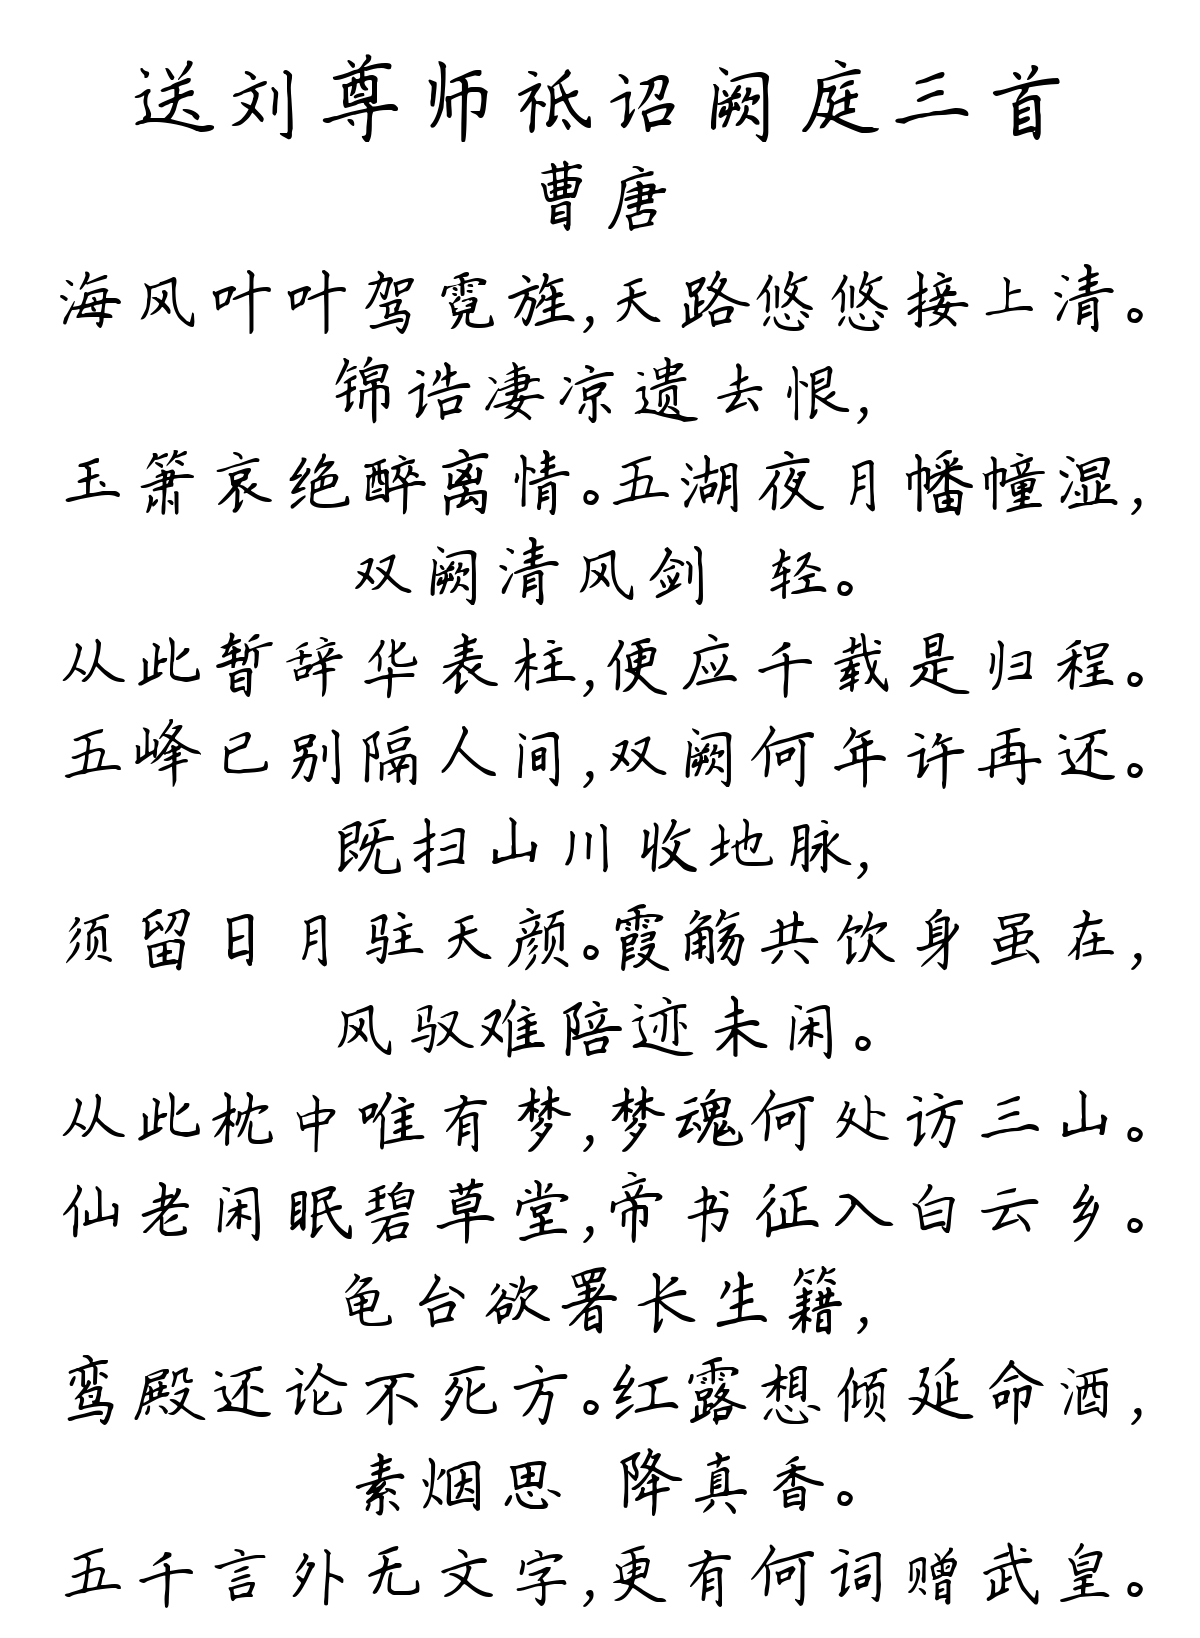 送刘尊师祗诏阙庭三首
曹唐
海风叶叶驾霓旌,天路悠悠接上清。
锦诰凄凉遗去恨,
玉箫哀绝醉离情。五湖夜月幡幢湿,
双阙清风剑 轻。
从此暂辞华表柱,便应千载是归程。
五峰已别隔人间,双阙何年许再还。
既扫山川收地脉,
须留日月驻天颜。霞觞共饮身虽在,
风驭难陪迹未闲。
从此枕中唯有梦,梦魂何处访三山。
仙老闲眠碧草堂,帝书征入白云乡。
龟台欲署长生籍,
鸾殿还论不死方。红露想倾延命酒,
素烟思 降真香。
五千言外无文字,更有何词赠武皇。